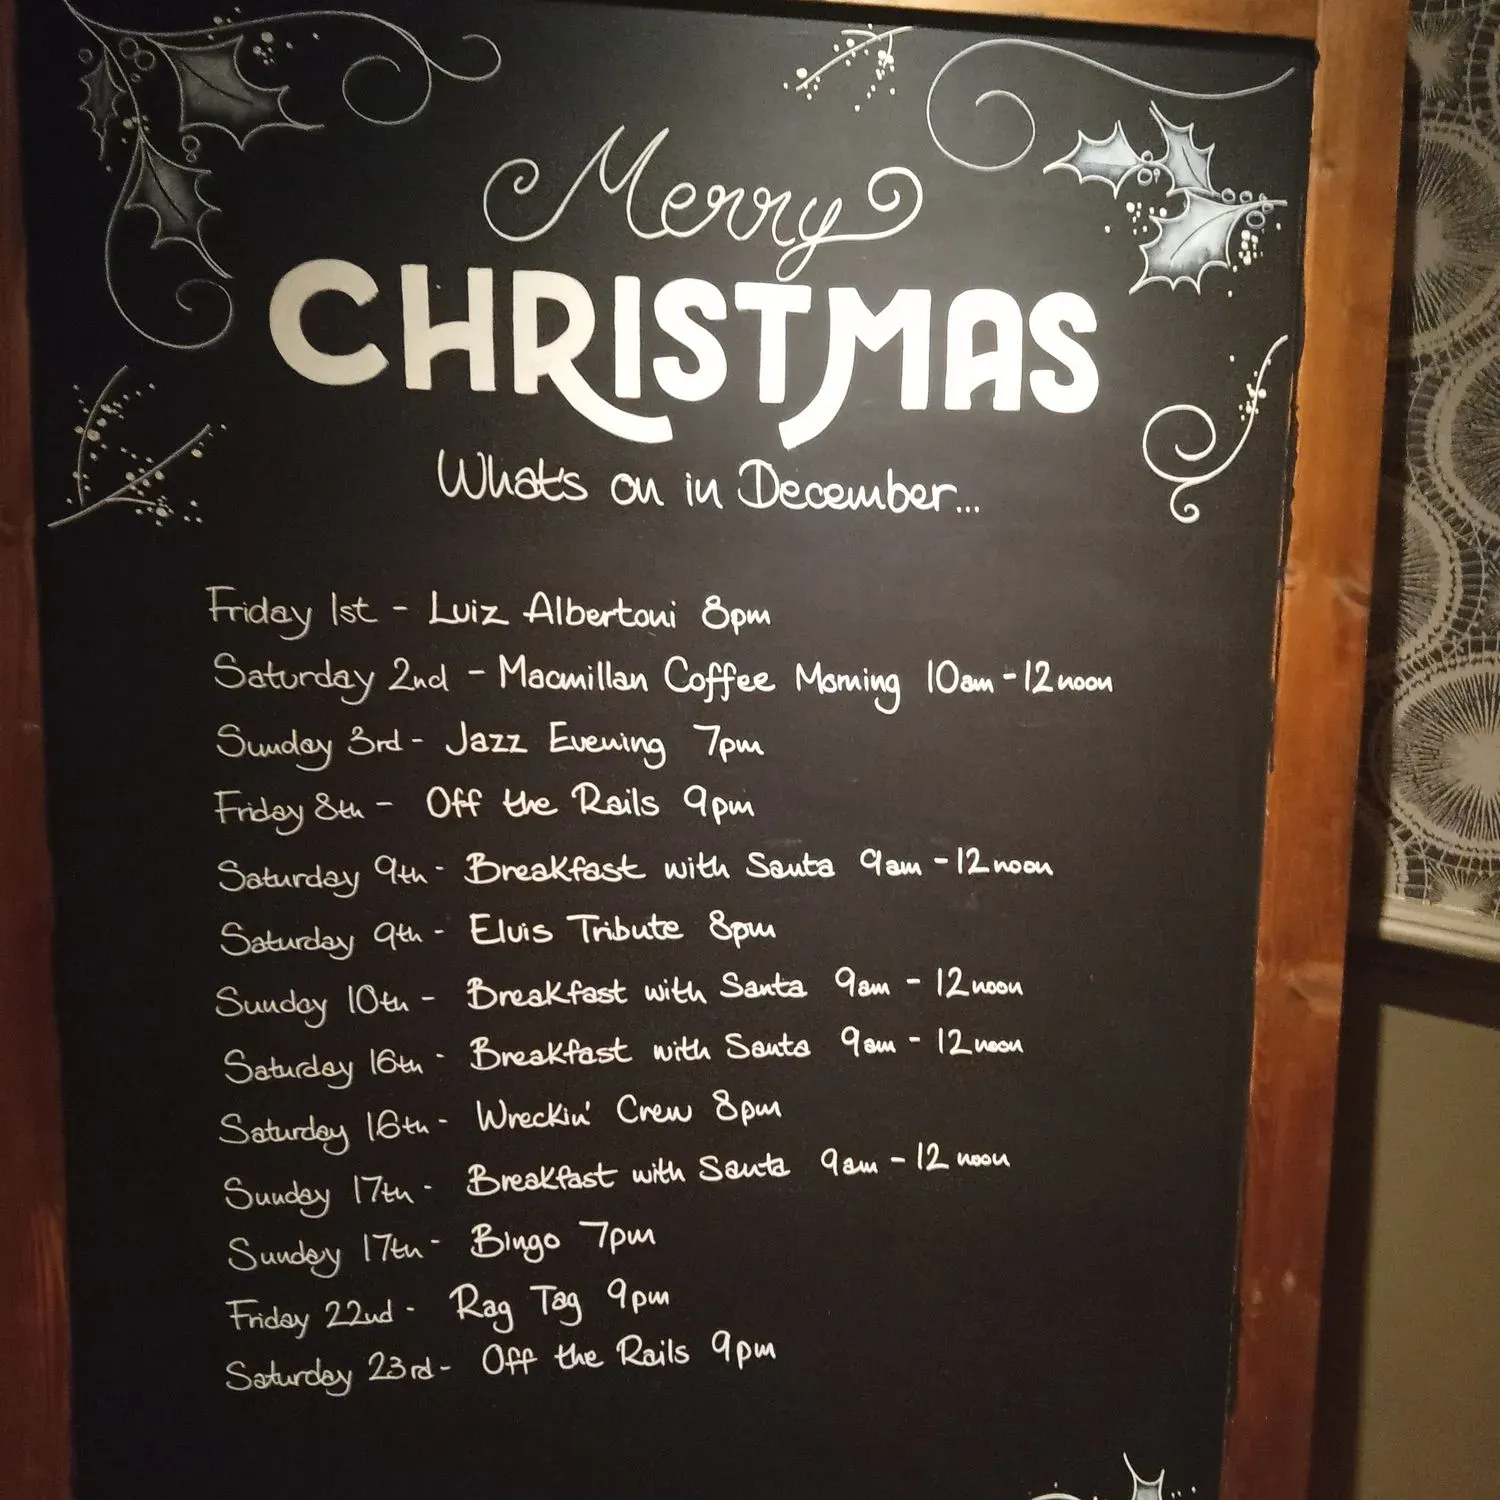 Merry
CHRISTMAS
What's on in December...
Friday 1st - Luiz Albertoni 8pm
Saturday 2nd - Macmillan Coffee Morning 10am - 12 noon
Sunday 3rd - Jazz Evening 7pm
Friday 8th - Off the Rails 9pm
Saturday 9th - Breakfast with Santa 9am - 12 noon
Saturday 9th - Elvis Tribute 8pm
Sunday 10th - Breakfast with Santa 9am - 12 noon
Saturday 16th - Breakfast with Santa 9am - 12 noon
Saturday 16th - Wreckin' Crew 8pm
Sunday 17th - Breakfast with Santa 9am - 12 noon
Sunday 17th - Bingo 7pm
Friday 22nd - Rag Tag 9pm
Saturday 23rd - Off the Rails 9pm